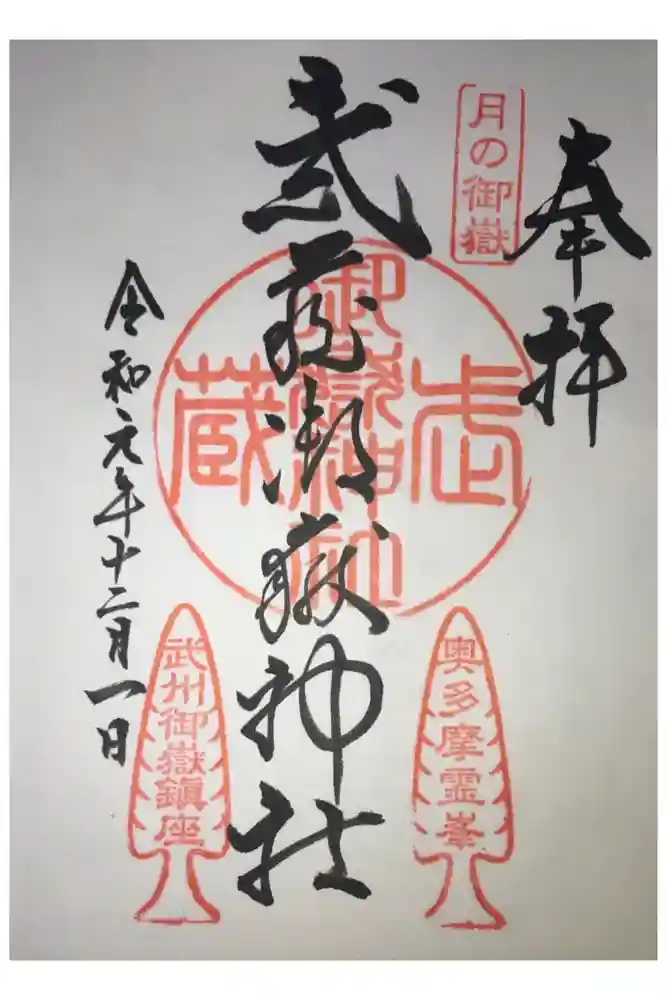 奉拝
月の御嶽
武蔵御嶽神社
武蔵
御嶽神社
奥多摩霊峯
令和元年十二月一日
武州御嶽鎮座